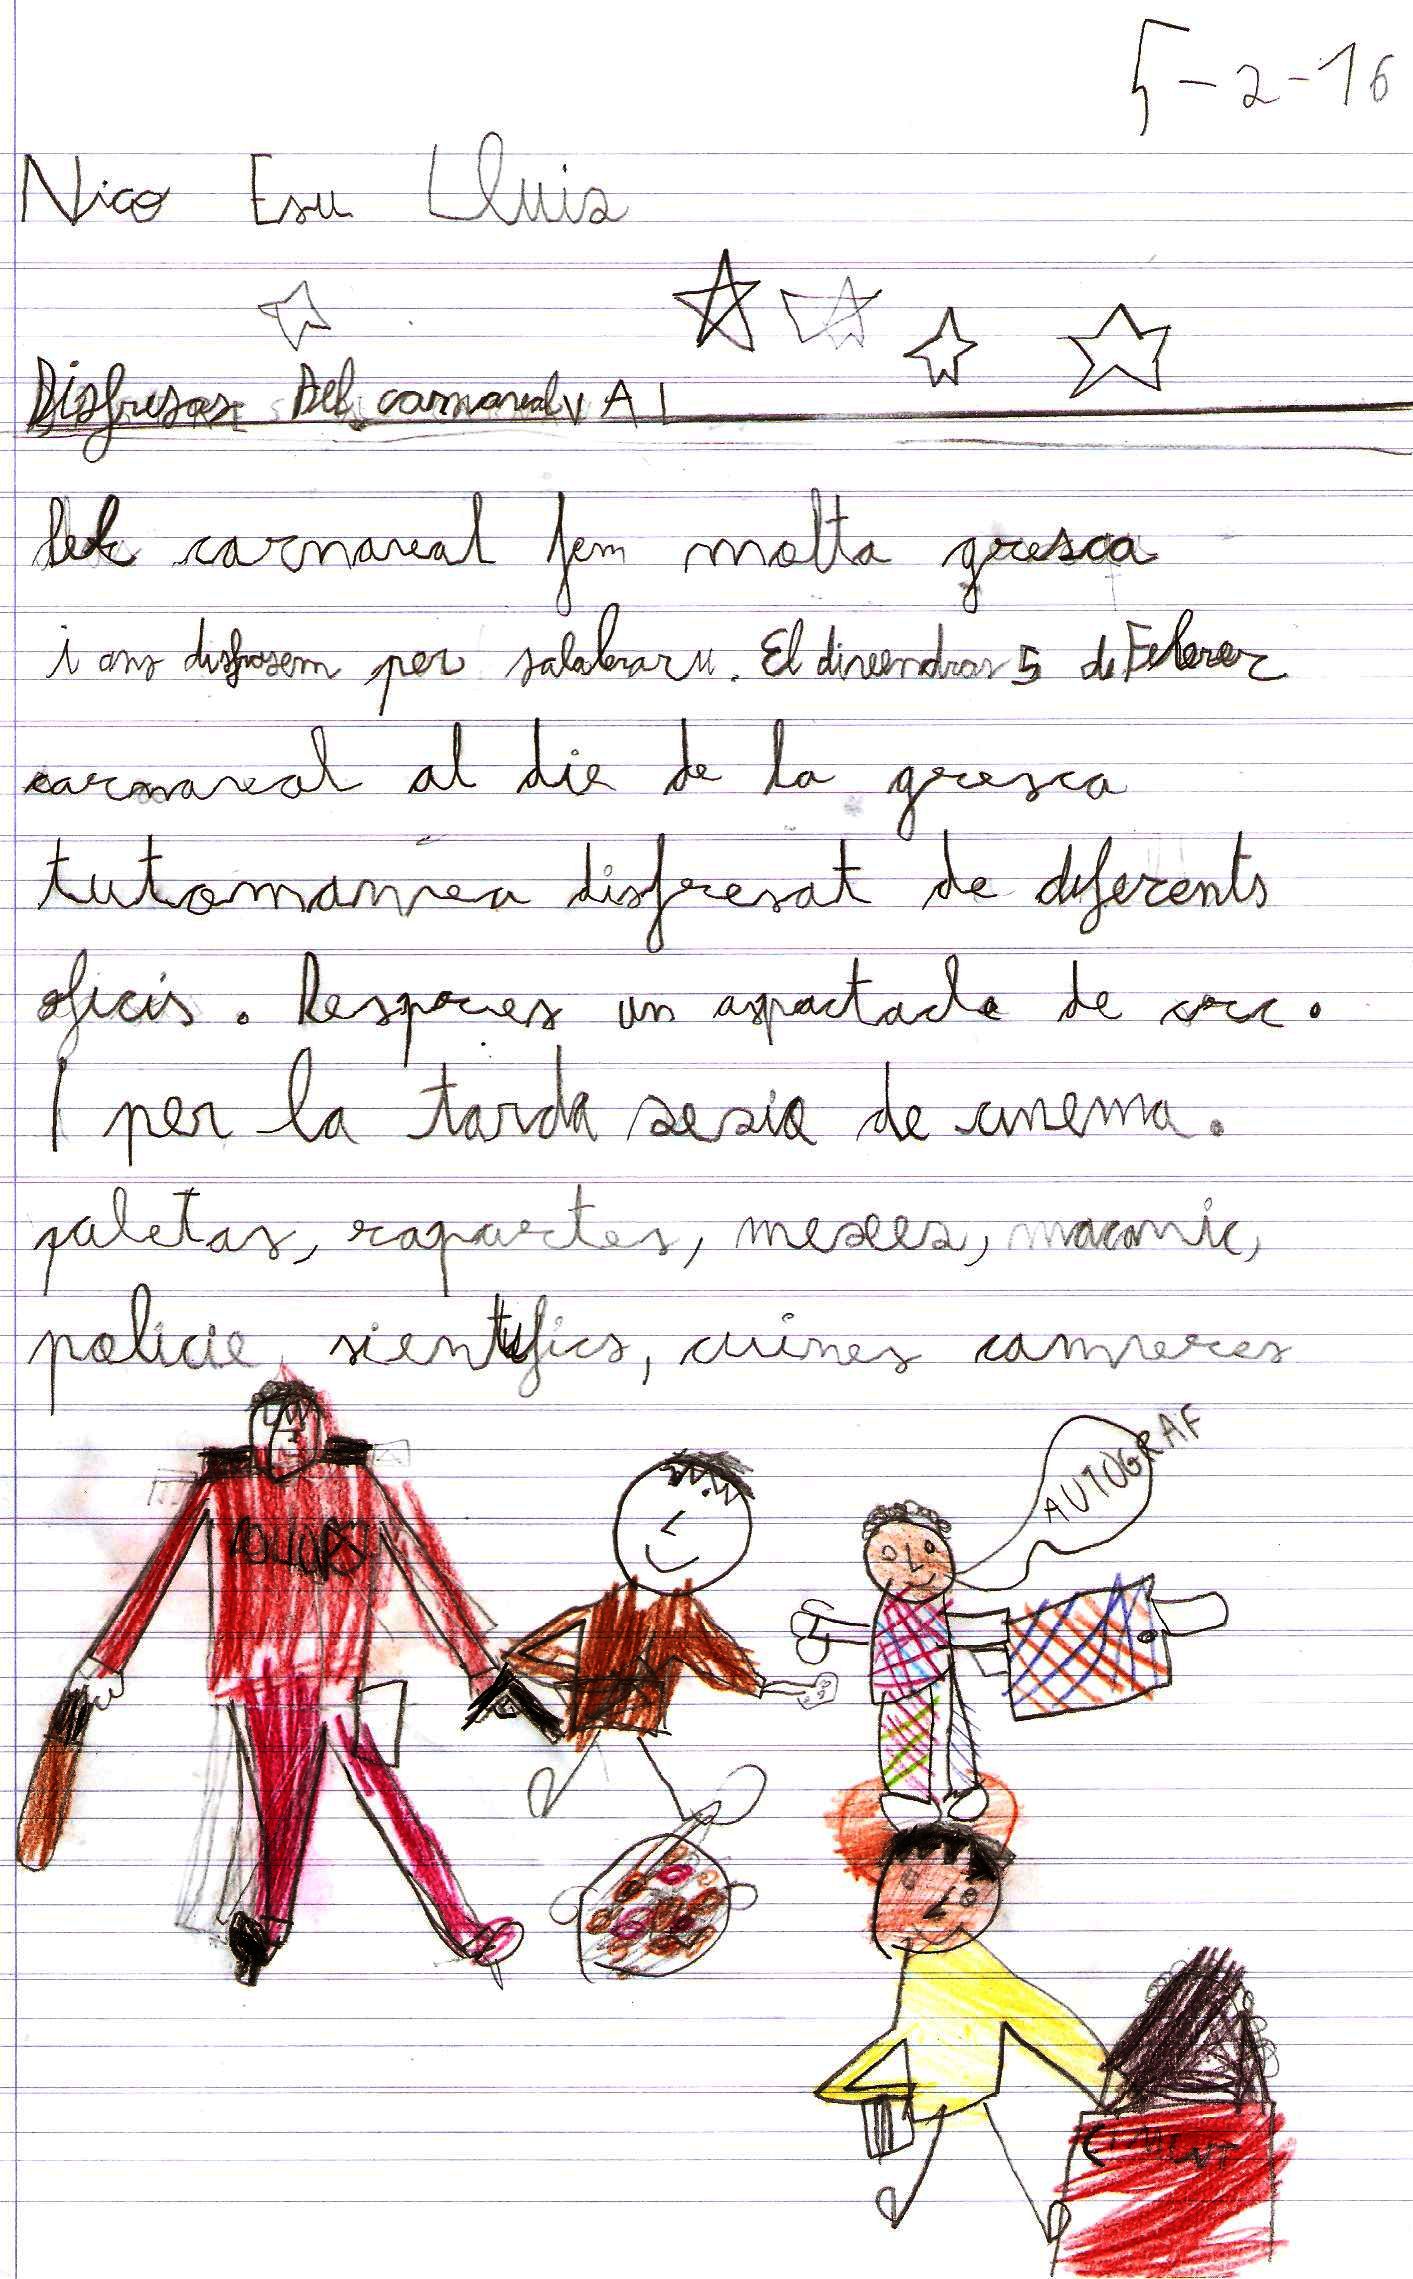 5-2-16
Nico Esu Lluis
Disfresas Del carnaval vAl
Pel carnaval fem molta gresca
i ans disfrasem per salabraru. El divendras 5 de Febrer
carnaval al die de la gresca
tutomanvea disfresat de diferents
oficis. Despres un aspactacle de circ.
I per la tarda sesio de cinema.
paletas, rapartes, meses, macanic,
policie, sientifics, cuines camreres
AUTOGRAF
CIMENT